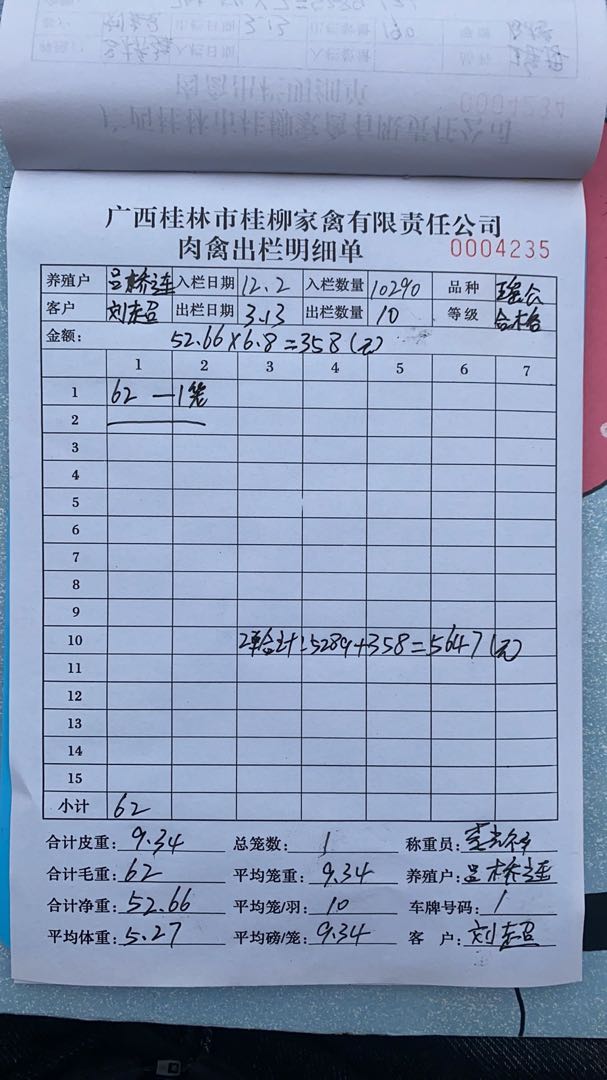 0004234
广西桂林市桂柳家禽有限责任公司
肉禽出栏明细单 0004235
养殖户 入栏日期 12.2 入栏数量 10290 品种
客户 出栏日期 3.13 出栏数量 10 等级 合格
金额: 52.66×6.8=358(元)
1 2 3 4 5 6 7
1 62 一1笼
2
3
4
5
6
7
8
9
10 2单合计:5289+358=5647(元)
11
12
13
14
15
小计 62
合计皮重: 9.34 总笼数: 1 称重员:
合计毛重: 62 平均笼重: 9.34 养殖户:
合计净重: 52.66 平均笼/羽: 10 车牌号码: 1
平均体重: 5.27 平均磅/笼: 9.34 客 户: